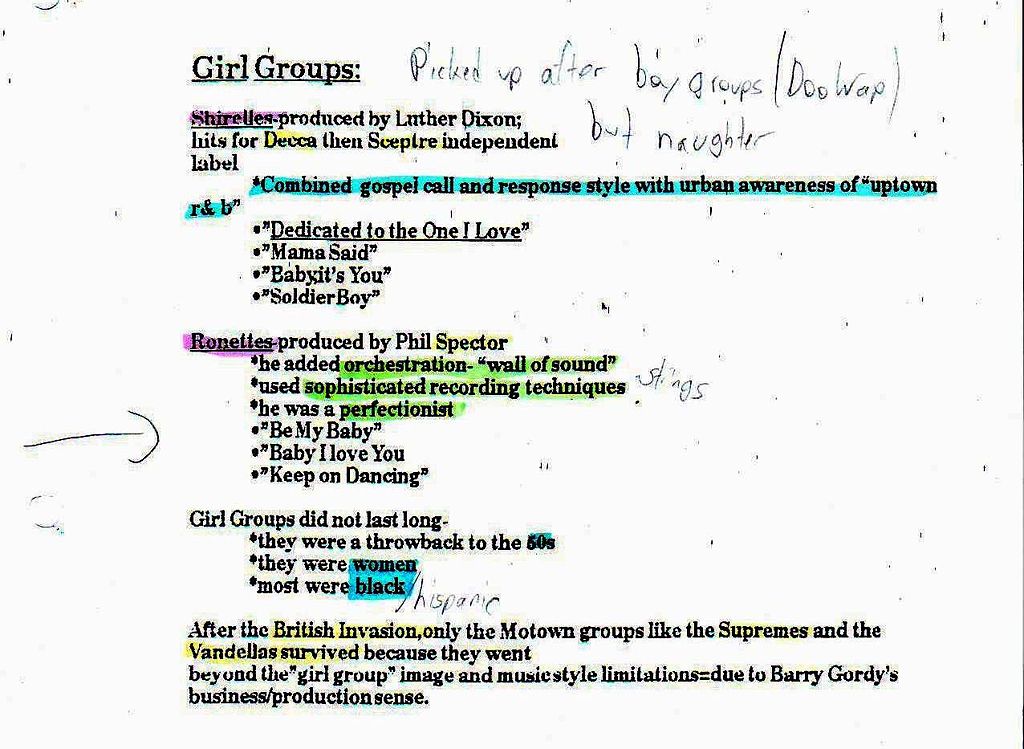 Girl Groups: Picked up after boy groups (DooWap)
but naughter
Shirelles-produced by Luther Dixon;
hits for Decca then Sceptre independent
label
*Combined gospel call and response style with urban awareness of "uptown
r& b"
•"Dedicated to the One I Love"
•"Mama Said"
•"Baby,it's You"
•"Soldier Boy"
Ronettes-produced by Phil Spector
*he added orchestration- "wall of sound"
*used sophisticated recording techniques stings
*he was a perfectionist
•"Be My Baby"
•"Baby I love You
•"Keep on Dancing"
Girl Groups did not last long-
*they were a throwback to the 50s
*they were women
*most were black /hispanic
After the British Invasion,only the Motown groups like the Supremes and the
Vandellas survived because they went
beyond the"girl group" image and music style limitations=due to Barry Gordy's
business/production sense.